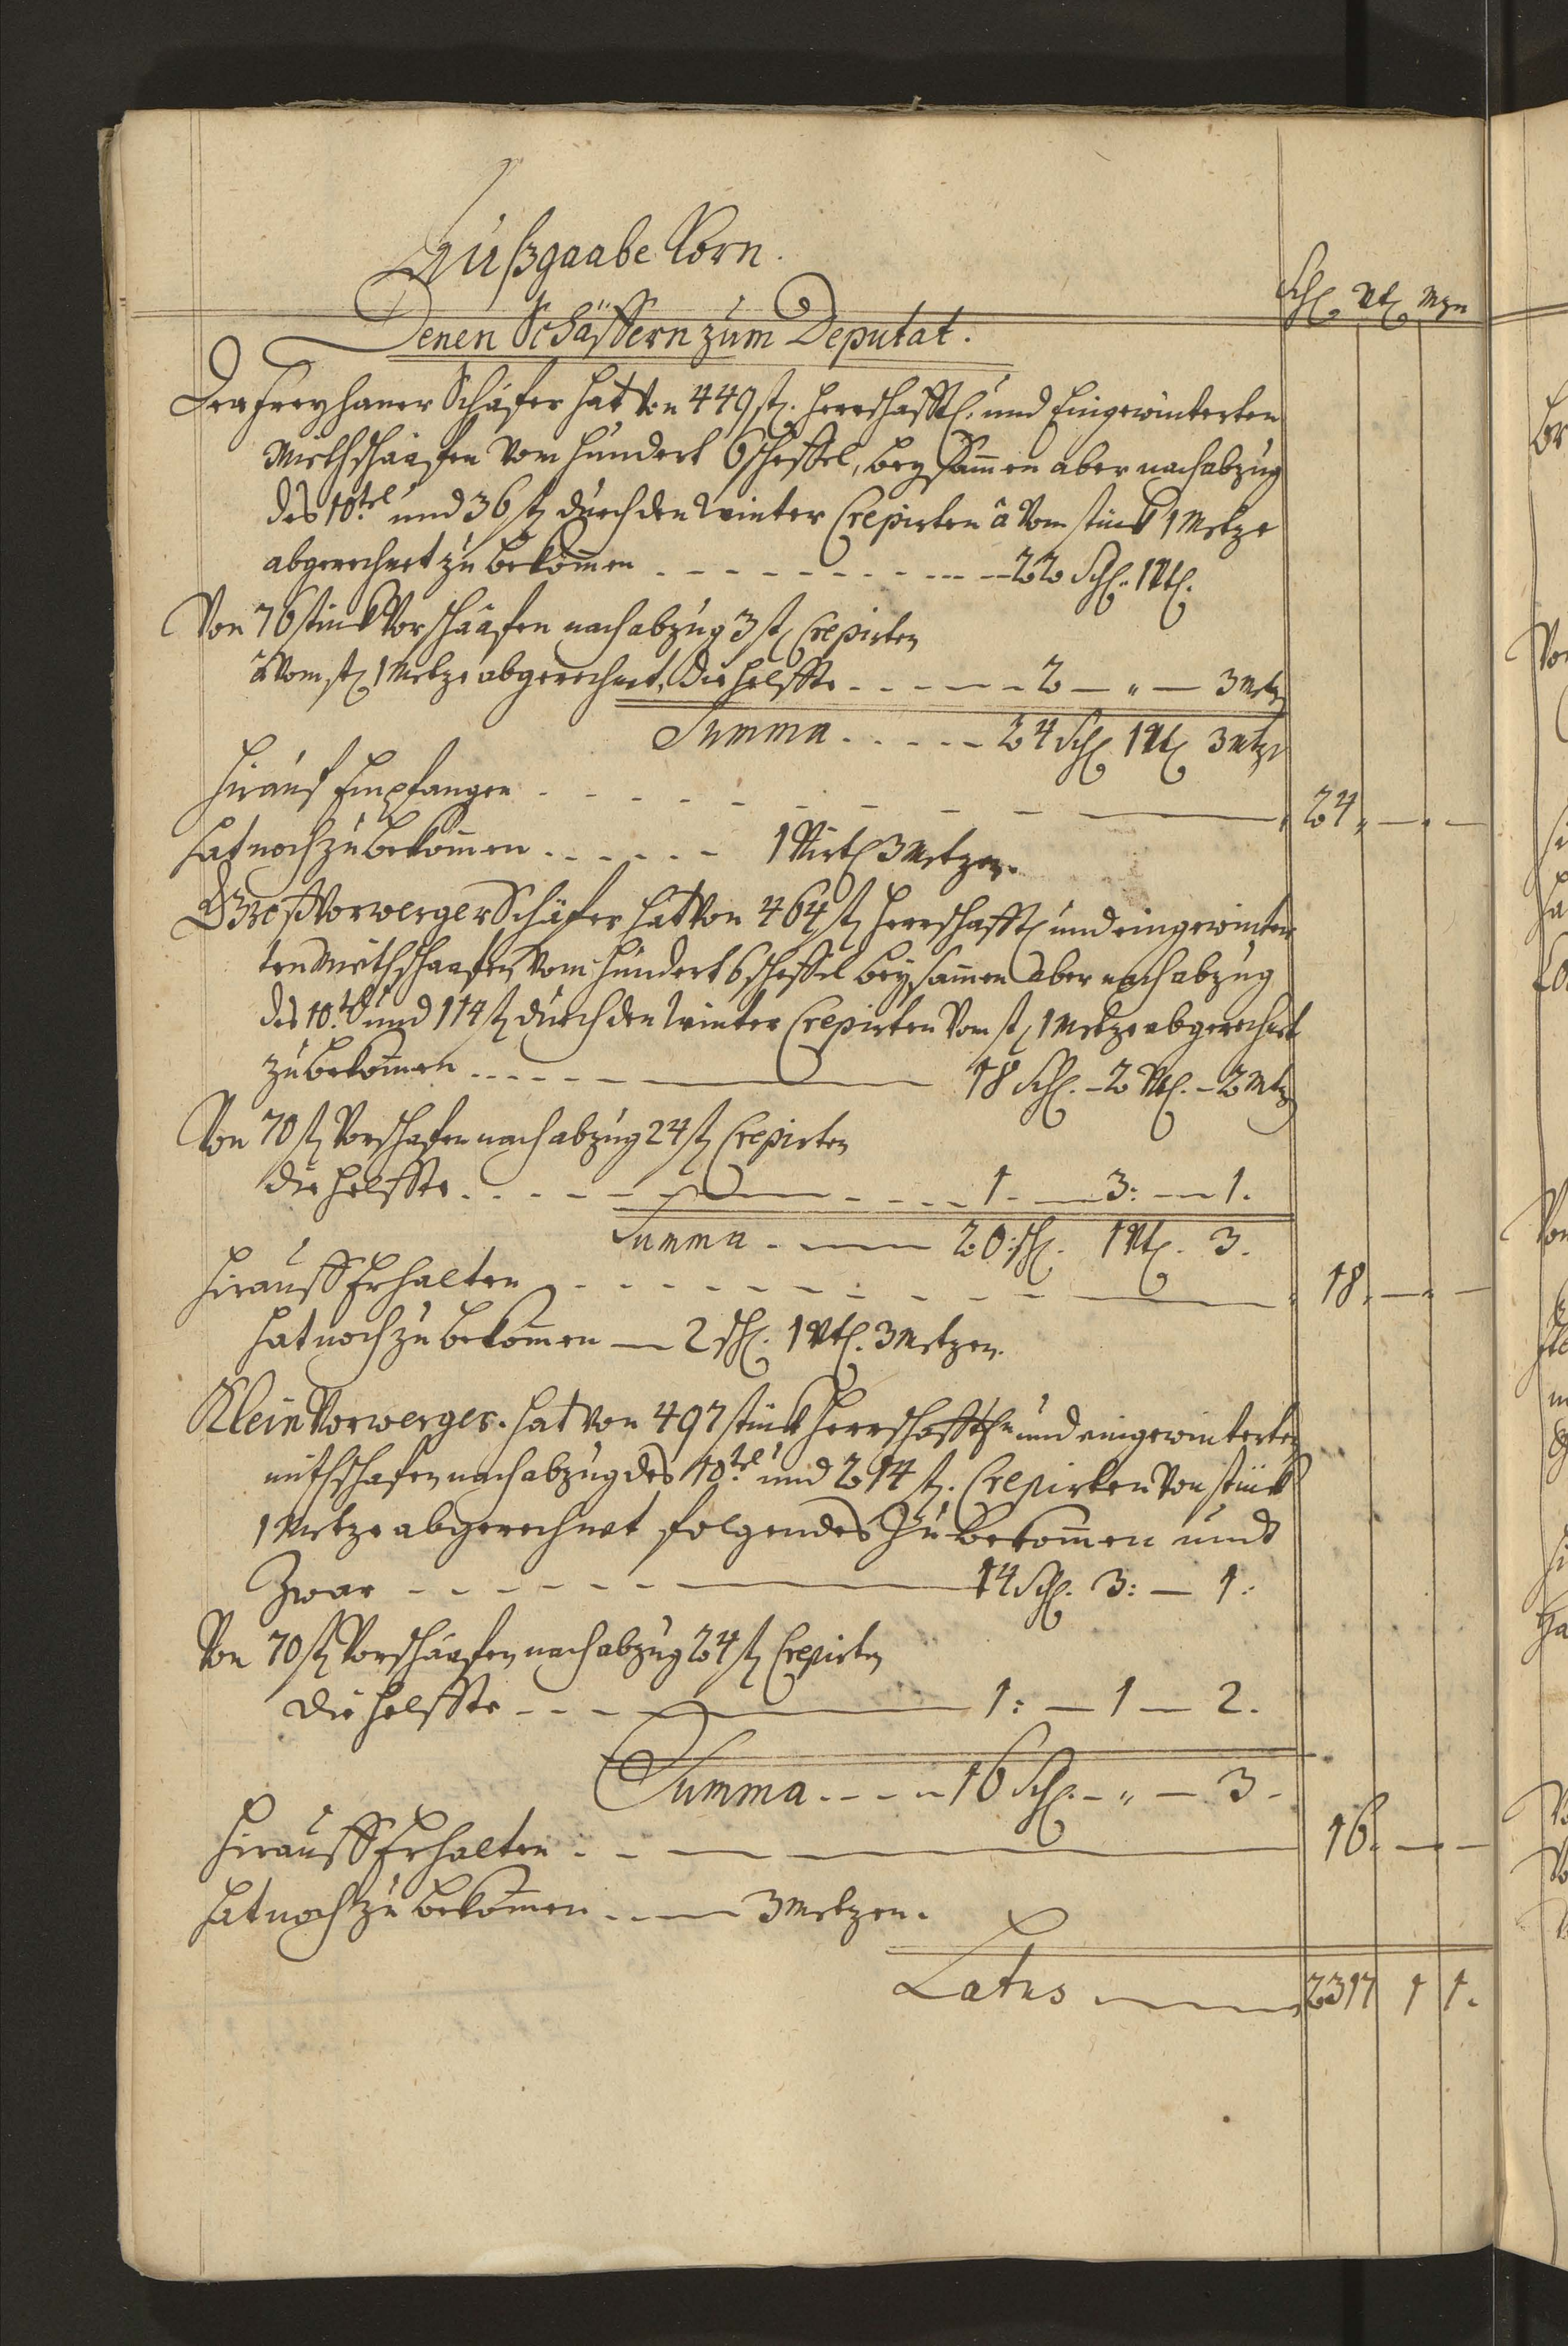 Außgaabe Korn.
Schl. Vtl. Mzn
Denen Schäffern zum Deputat.
Der Freyhaner Schäfer hat von 449 st. herrschafftl. und Eingewinterten
Miethschaafen vom hundert 6 scheffel, beysammen aber nach abzug
des 10.tel und 36 st durch den winter Crepirten â vom stück 1 Metze
abgerechnet zu bekommen - - - 22 Schl. 1 Vtl.
Von 76 stück Vorschaafen nach abzug 3 st Crepirten
â vom st 1 Metze abgerechnet, die helffte - - - 2 — " — 3 Metz
Summa - - - 24 Schl 1 Vtl 3 Mtzn
Hierauf Empfangen - - - 24. — . —
Hat noch zu bekommen - - - 1 Virtl 3 Metzen.
Groß Vorwerger Schäfer hat von 464 st herrschafftl und eingewinter
ten Mieth schaafen vom hundert 6 scheffel beysammen aber nach abzug
des 10.tel und 114 st durch den winter Crepirten vom st 1 Metze abgerechnet
zu bekommen - - - 18 Schl. - 2 Vtl. - 2 Mtz
Von 70 st Vorschafen nach abzug 24 st Crepirten
die helffte - - - 1. — 3: — 1.
Summa - — 20: schl. 1 Vtl. 3.
Hierauff Erhalten - - - 18. — . —
Hat noch zu bekommen — 2 schl. 1 Vtl. 3 Metzen.
Klein Vorwerger. hat von 497 stück und eingewinterten
miethschafen nach abzug des 10.tel und 214 st. Crepirten von stück
1 Metze abgerechnet folgendes zu bekommen undt
Zwar - - - 14 Schl. 3: — 1.
Von 70 st Vorschaafen nach abzug 24 st Crepirten
die helffte - - - 1: — 1 — 2.
Summa - - - 16 Schl. - " — 3.
Hierauff Erhalten - - - 16. — . —
Hat noch zu bekommen - — 3 Metzen.
Latus — 2317 1 1.